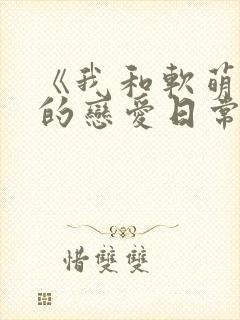 《我和軟萌
的戀愛日常
惜雙雙